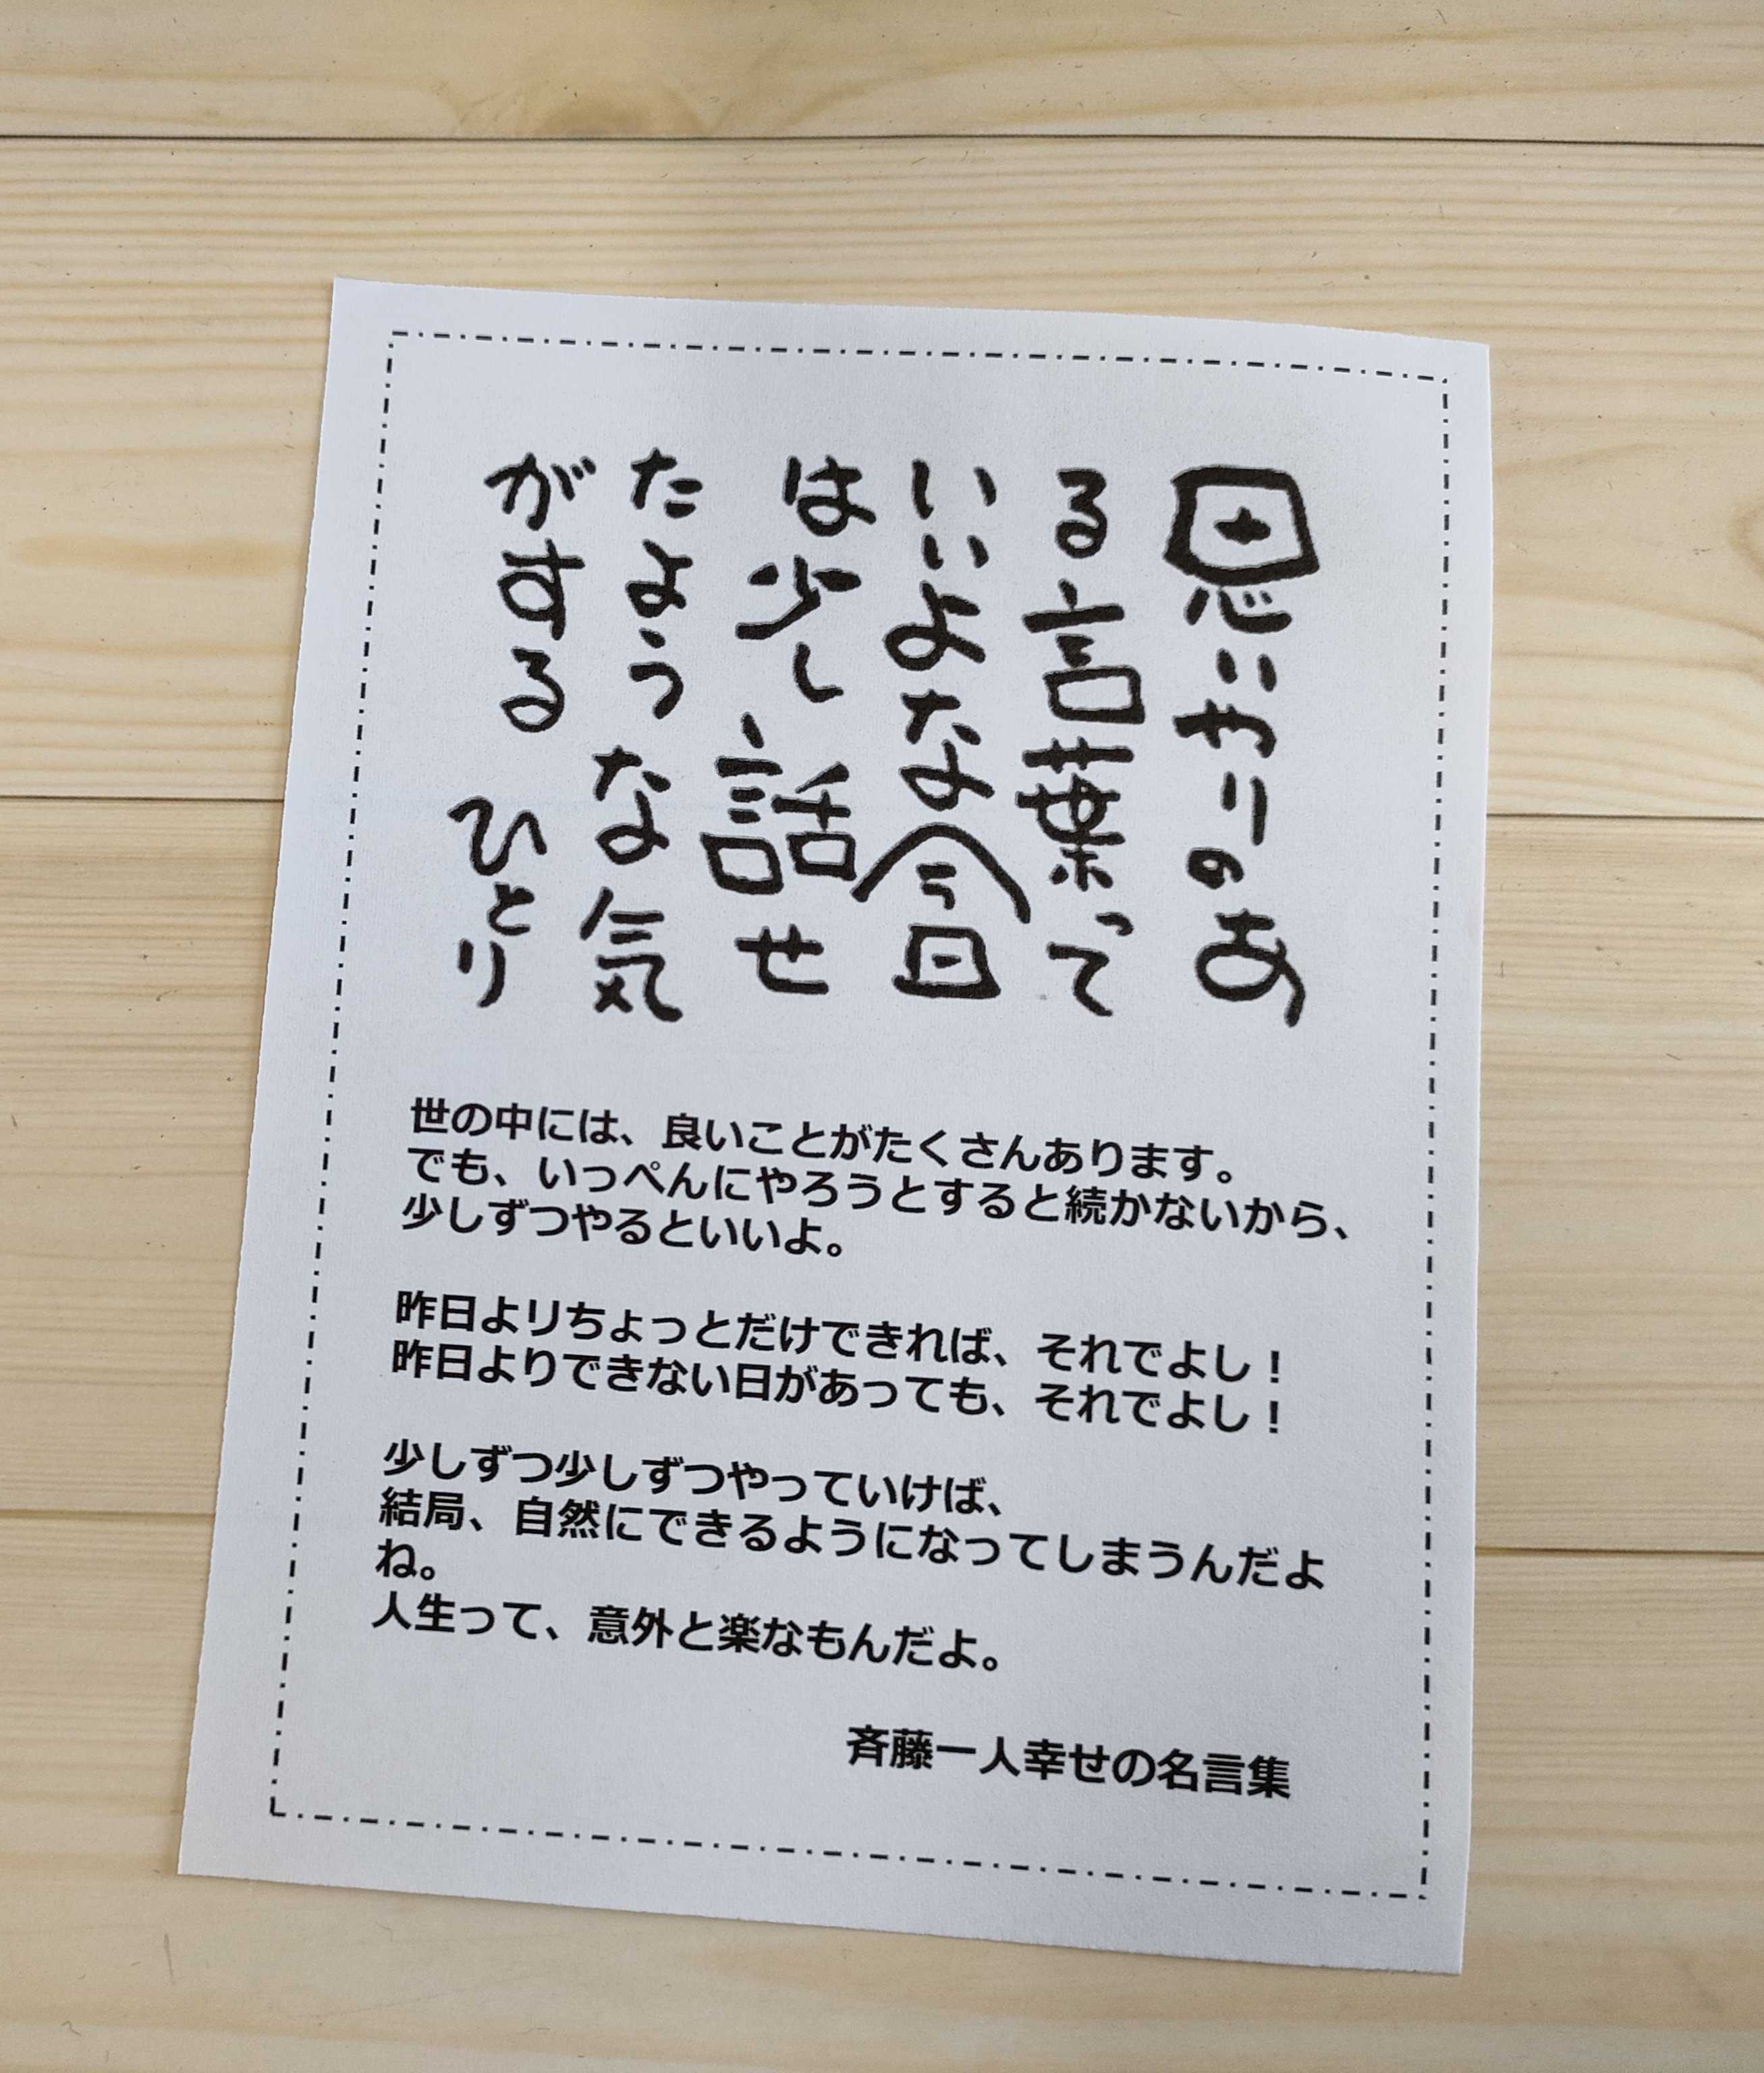 思いやりのあ
る言葉って
いいよな今日
は少し話せ
たような気
がする
ひとり
世の中には、良いことがたくさんあります。
でも、いっぺんにやろうとすると続かないから、
少しずつやるといいよ。
昨日よりちょっとだけできれば、それでよし！
昨日よりできない日があっても、それでよし！
少しずつ少しずつやっていけば、
結局、自然にできるようになってしまうんだよ
ね。
人生って、意外と楽なもんだよ。
斉藤一人幸せの名言集